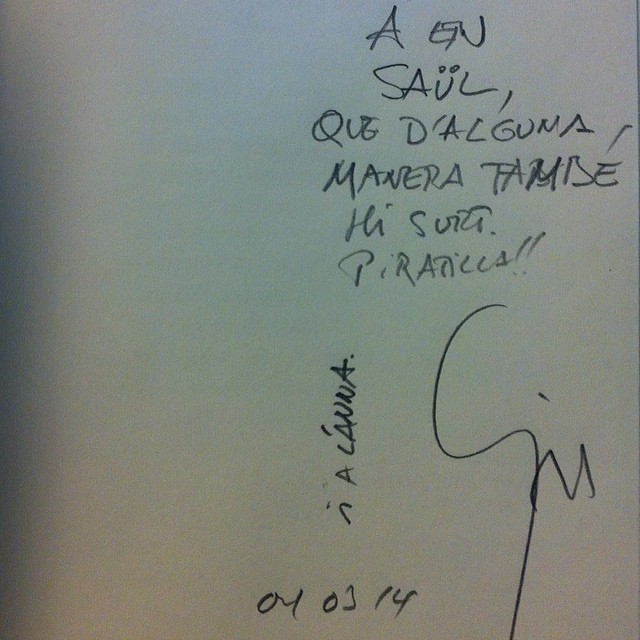 A EN
SAÜL,
QUE D'ALGUNA
MANERA TAMBÉ
HI SURT.
PIRATILLA!!
I A L'ANNA.
04 03 14